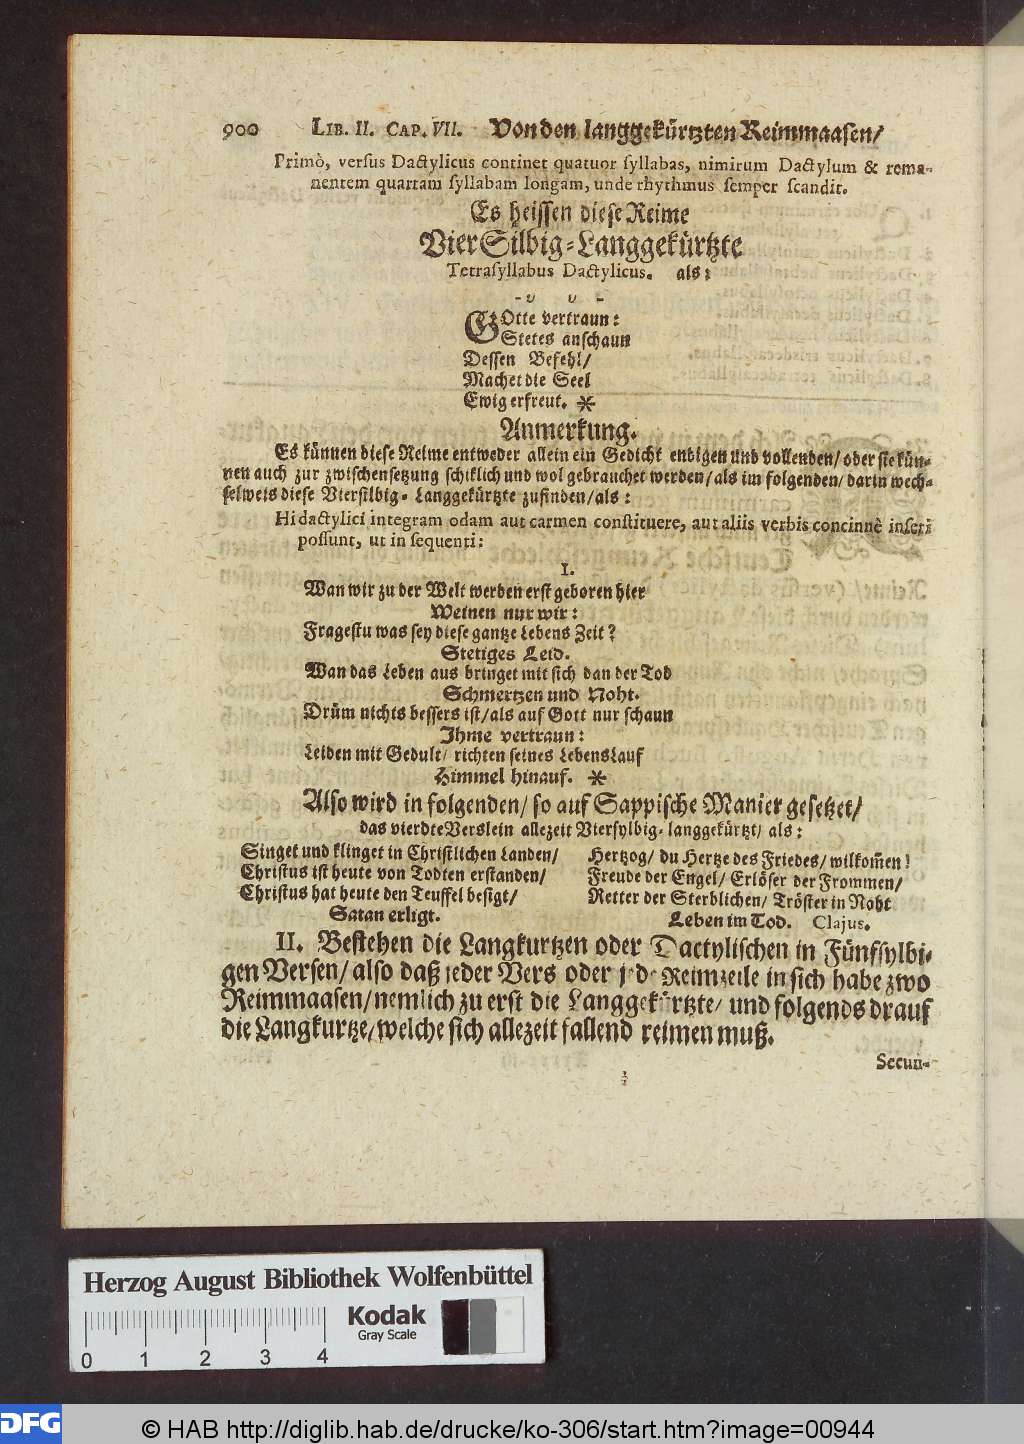 900 LIB. II. CAP. VII. Von den langgekürtzten Reimmaasen/
Primò, versus Dactylicus continet quatuor syllabas, nimirum Dactylum & rema-
nentem quartam syllabam longam, unde rhythmus semper scandit.
Es heissen diese Reime
VierSilbig-Langgekürtzte
Tetrasyllabus Dactylicus. als:
- υ υ -
GOtte vertraun:
Stetes anschaun
Dessen Befehl/
Machet die Seel
Ewig erfreut. *
Anmerkung.
Es künnen diese Reime entweder allein ein Gedicht endigen und vollenden/ oder sie kün-
nen auch zur zwischensetzung schiklich und wol gebrauchet werden/ als im folgenden/ darin wech-
selweis diese Viersilbig-Langgekürtzte zufinden/ als:
Hi dactylici integram odam aut carmen constituere, aut aliis verbis concinnè inseri
possunt, ut in sequenti:
I.
Wan wir zu der Welt werden erst geboren hier
Weinen nur wir:
Fragestu was sey diese gantze Lebens Zeit?
Stetiges Leid.
Wan das Leben aus bringet mit sich dan der Tod
Schmertzen und Noht.
Drüm nichts bessers ist/ als auf Gott nur schaun
Ihme vertraun:
Leiden mit Gedult/ richten seines LebensLauf
Himmel hinauf. *
Also wird in folgenden/ so auf Sappische Manier gesetzet/
das vierdte Verslein allezeit Viersylbig-langgekürtzt/ als:
Singet und klinget in Christlichen Landen/
Christus ist heute von Todten erstanden/
Christus hat heute den Teuffel besigt/
Satan erligt.
Hertzog/ du Hertze des Friedes/ wilkom̃en!
Freude der Engel/ Erlöser der Frommen/
Retter der Sterblichen/ Tröster in Noht
Leben im Tod. Clajus.
II. Bestehen die Langkurtzen oder Dactylischen in Fünfsylbi-
gen Versen/ also daß jeder Vers oder jede Reimzeile in sich habe zwo
Reimmaasen/ nemlich zu erst die Langgekürtzte/ und folgends drauf
die Langkurtze/ welche sich allezeit fallend reimen muß.
Secun-
Herzog August Bibliothek Wolfenbüttel
Kodak
Gray Scale
0 1 2 3 4
DFG © HAB http://diglib.hab.de/drucke/ko-306/start.htm?image=00944